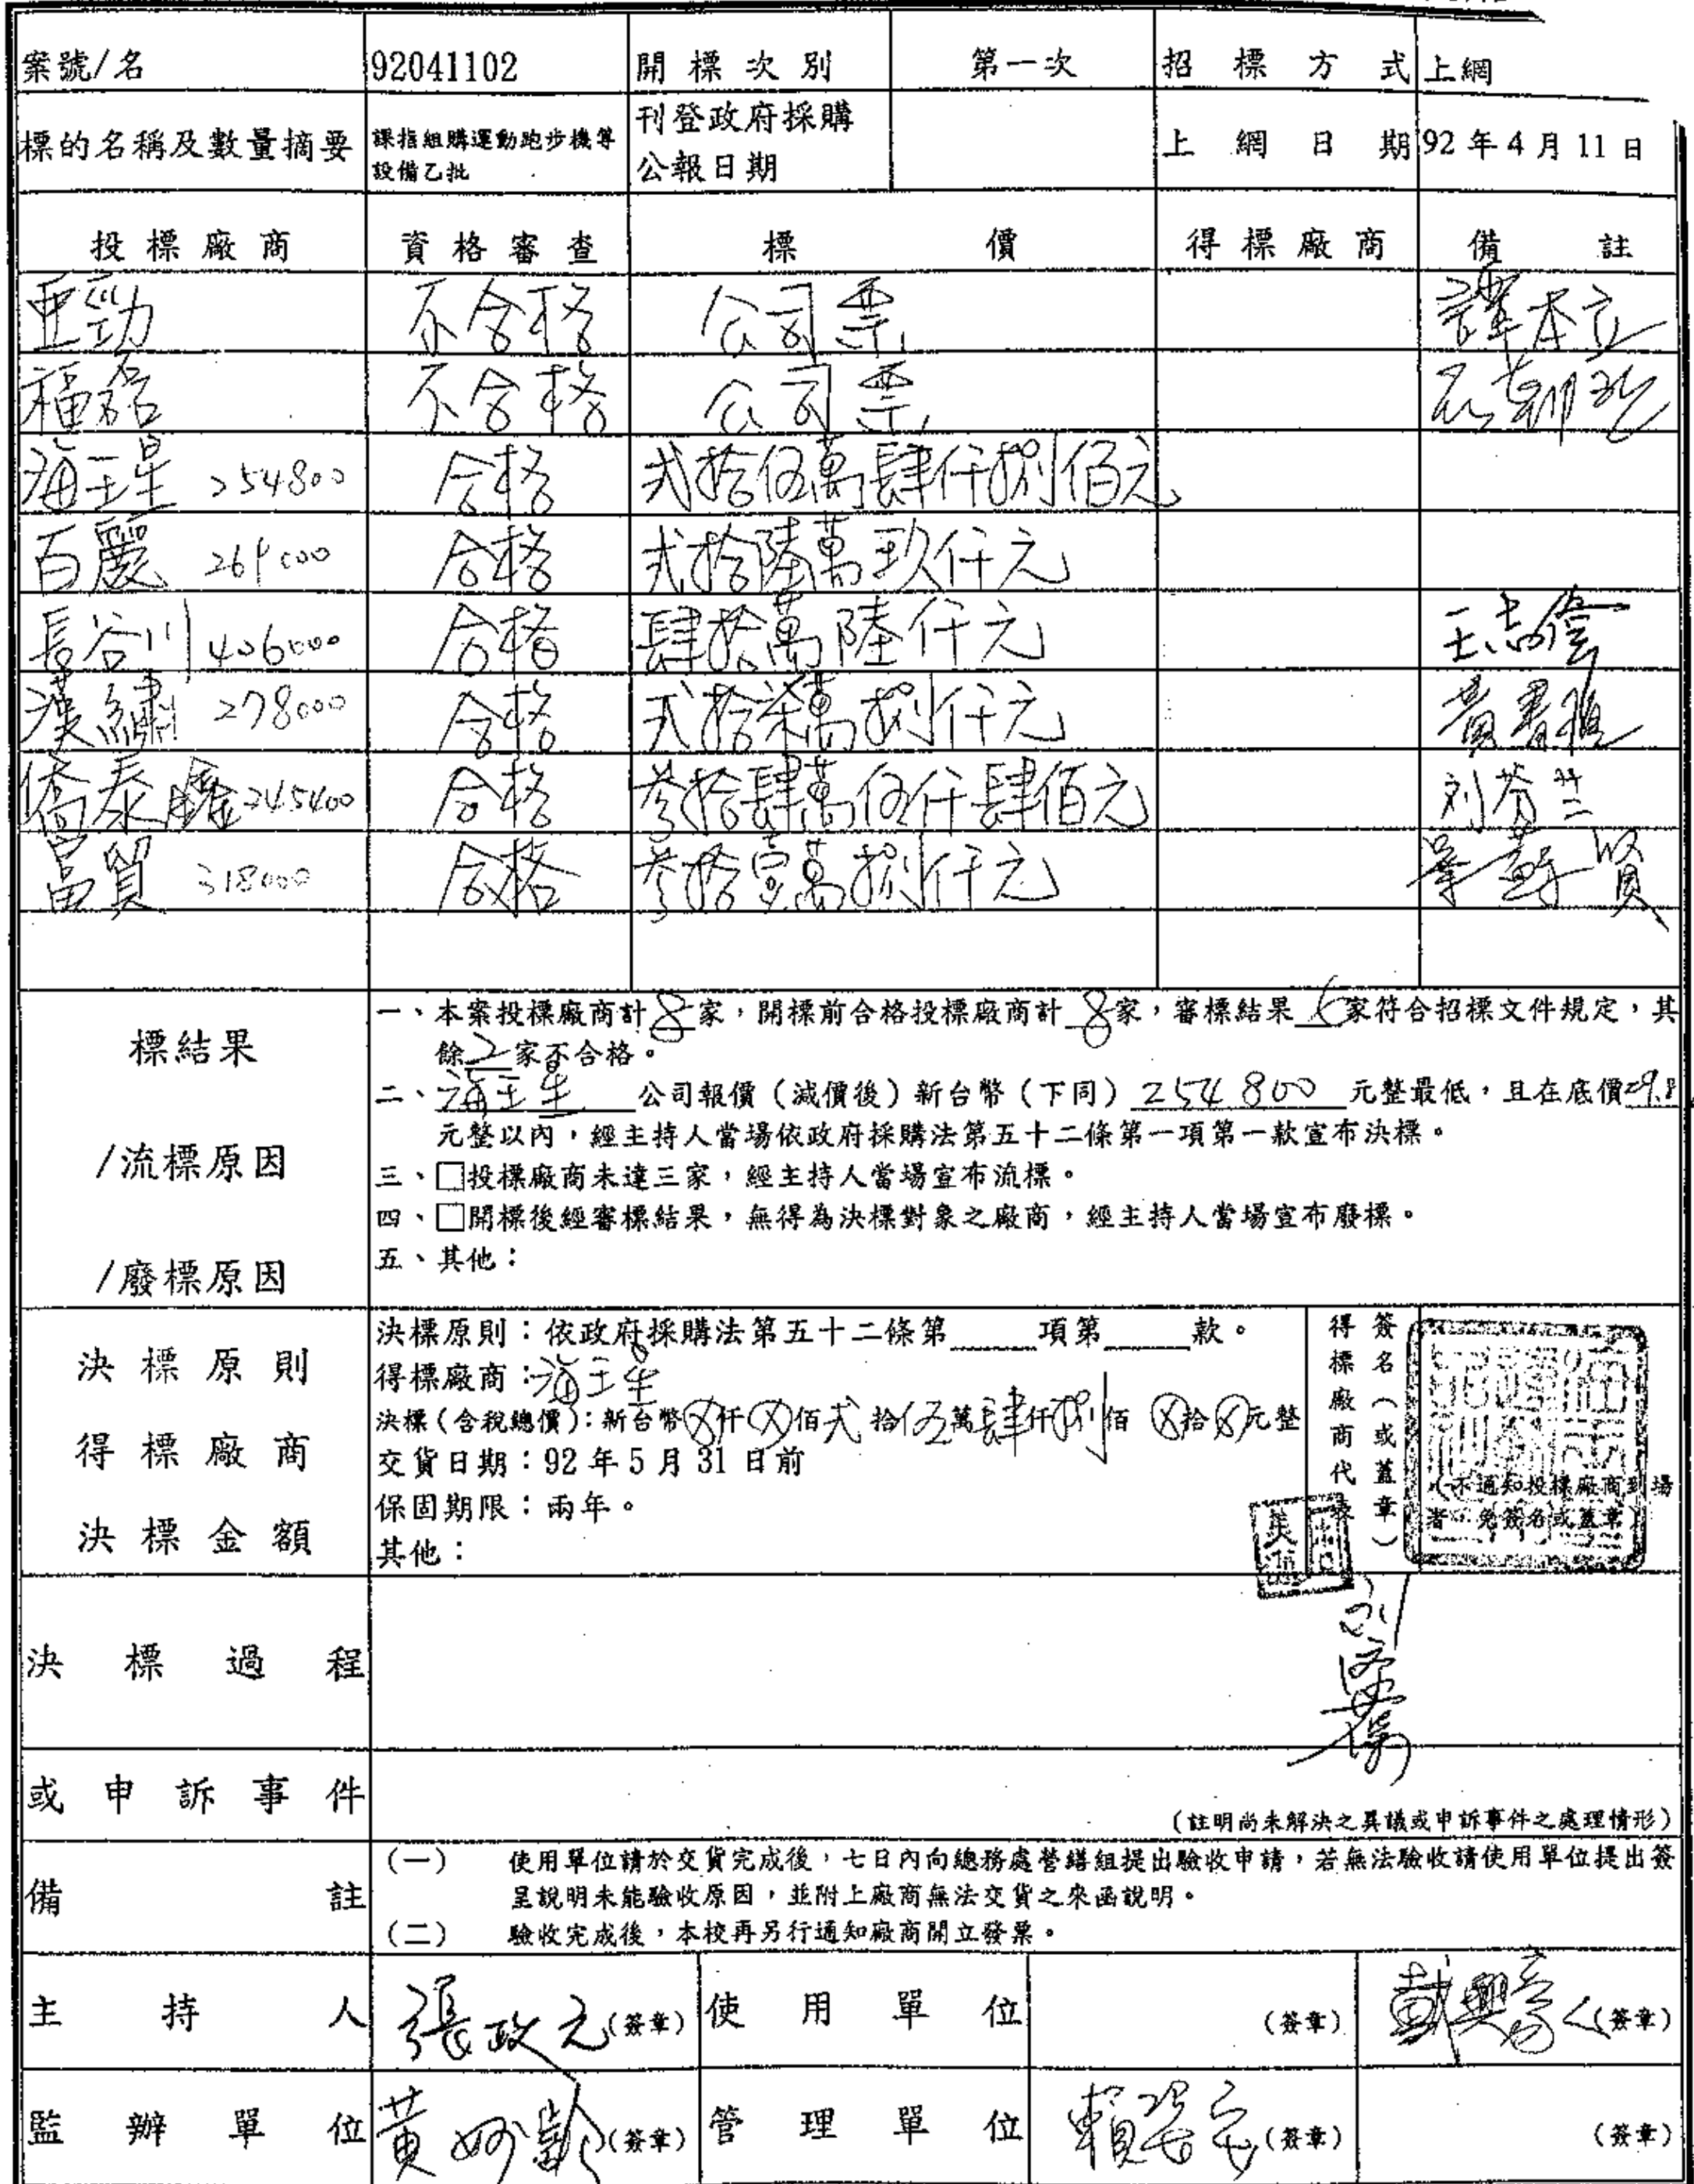 案號/名 92041102 開標次別 第一次 招標方式 上網
標的名稱及數量摘要 課指組購運動跑步機等設備乙批 刊登政府採購公報日期 上網日期 92年4月11日
投標廠商 資格審查 標價 得標廠商 備註
亞勁 不合格 公司票 譚本立
福君 不合格 公司票
海王星 254800 合格 弍拾伍萬肆仟捌佰元
百麗 269000 合格 弍拾陸萬玖仟元
長谷川 406000 合格 肆拾萬陸仟元
漢繡 278000 合格 弍拾柒萬捌仟元
僑泰鑫 345400 合格 叁拾肆萬伍仟肆佰元
富貿 318000 合格 叁拾壹萬捌仟元
標結果
/流標原因
/廢標原因
一、本案投標廠商計8家，開標前合格投標廠商計8家，審標結果6家符合招標文件規定，其
餘2家不合格。
二、海王星公司報價（減價後）新台幣（下同）254800元整最低，且在底價29.8
元整以內，經主持人當場依政府採購法第五十二條第一項第一款宣布決標。
三、□投標廠商未達三家，經主持人當場宣布流標。
四、□開標後經審標結果，無得為決標對象之廠商，經主持人當場宣布廢標。
五、其他：
決標原則
得標廠商
決標金額
決標原則：依政府採購法第五十二條第 項第 款。
得標廠商：海王星
決標（含稅總價）：新台幣⊗仟⊗佰弍拾伍萬肆仟捌佰⊗拾⊗元整
交貨日期：92年5月31日前
保固期限：兩年。
其他：
得標廠商代表
簽名（或蓋章）
（不通知投標廠商到場
者，免簽名或蓋章）
決標過程
或申訴事件
（註明尚未解決之異議或申訴事件之處理情形）
備註
（一） 使用單位請於交貨完成後，七日內向總務處營繕組提出驗收申請，若無法驗收請使用單位提出簽
呈說明未能驗收原因，並附上廠商無法交貨之來函說明。
（二） 驗收完成後，本校再另行通知廠商開立發票。
主持人 張政元（簽章） 使用單位 （簽章） （簽章）
監辦單位 黃妙齡（簽章） 管理單位 （簽章） （簽章）